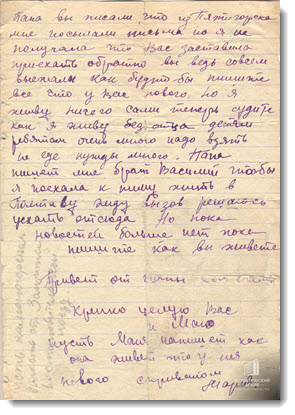 Папа вы писали что из Пятигорска
мне посылали письма но я не
получала что Вас заставило
приехать обратно вы ведь совсем
выехали как будто бы пишите
все что у Вас нового, но я
живу ничего сами теперь судите
как я живу без отца детям
ребятам очень много надо взять
не где нужды много. Папа
пишет мне брат Василий чтобы
я поехала к нему жить в
Полтаву жду вызов решаюсь
уехать отсюда Но пока
новостей больше нет пока
пишите как вы живете
Привет от
Крепко целую Вас
и Маю
пусть Маня напишет как
она живет что у нея
нового с приветом Мария